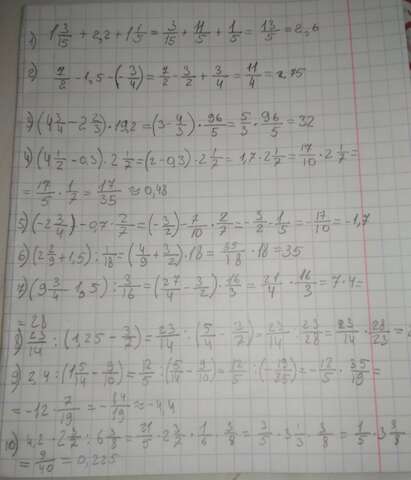 1) 1 3/15 + 2,2 + 1 1/5 = 3/15 + 11/5 + 1/5 = 13/5 = 2,6
2) 7/2 - 1,5 - (-3/4) = 7/2 - 3/2 + 3/4 = 11/4 = 2,75
3) (4 3/4 - 2 2/3) · 19,2 = (3 - 4/3) · 96/5 = 5/3 · 96/5 = 32
4) (4 1/2 - 0,3) · 2 1/7 = (2 - 0,3) · 2 1/7 = 1,7 · 2 1/7 = 17/10 · 2 1/7 =
= 17/5 · 1/7 = 17/35 ≈ 0,48
5) (-2 3/4) - 0,7 · 2/7 = (-3/2) - 7/10 · 2/7 = -3/2 - 1/5 = -17/10 = -1,7
6) (2 2/9 + 1,5) : 1/18 = (4/9 + 3/2) · 18 = 35/18 · 18 = 35
7) (9 3/4 - 1,5) : 3/16 = (27/4 - 3/2) · 16/3 = 21/4 · 16/3 = 7 · 4 =
= 28
8) 23/14 : (1,25 - 3/7) = 23/14 : (5/4 - 3/7) = 23/14 : 23/28 = 23/14 · 28/23 =
9) 2,4 : (1 5/14 - 9/10) = 12/5 : (5/14 - 9/10) = 12/5 : (-19/35) = -12/5 · 35/19 =
= -12 · 7/19 = -84/19 ≈ -4,4
10) 4,2 · 2 : 6 = 21/5 · 2 · 1/6 · 3/8 = · 3 · 3/8 = 1/5 · 3
= 9/40 = 0,225